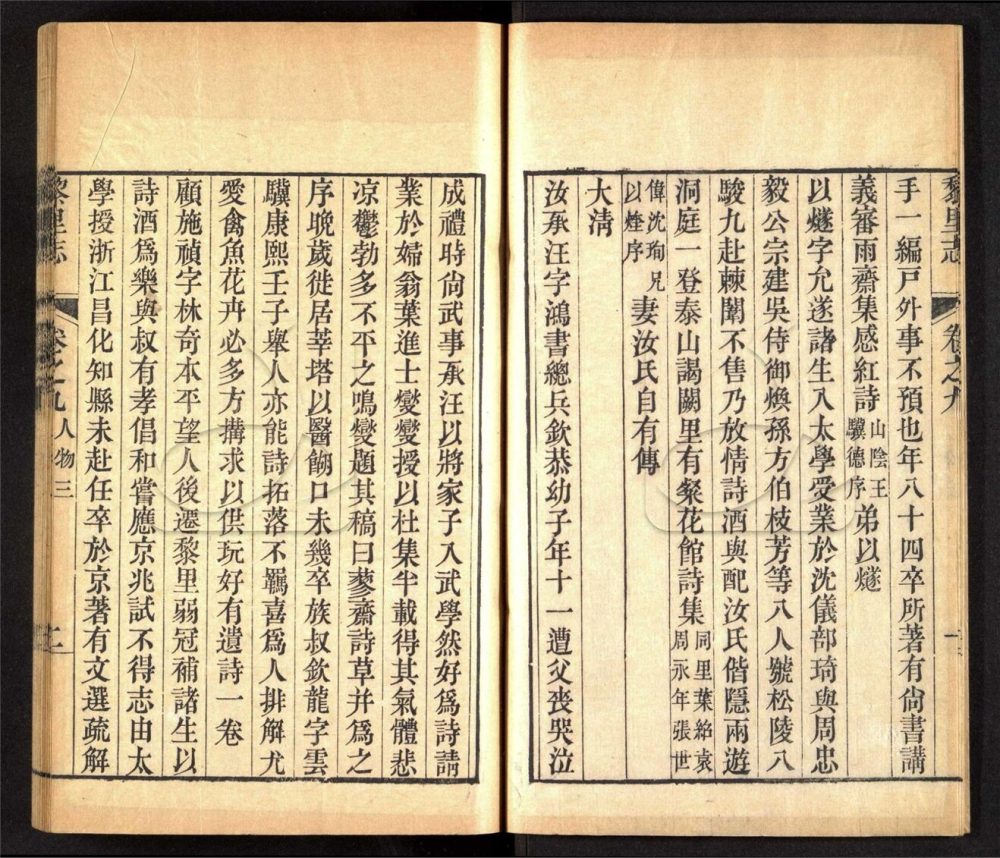 黎里志 卷之九
手一編戸外事不預也年八十四卒所著有尙書講
義審雨齋集感紅詩山陰王驥德序弟以燧
以燧字允遂諸生入太學受業於沈儀部琦與周忠
毅公宗建吳侍御煥孫方伯枝芳等八人號松陵八
駿九赴棘闈不售乃放情詩酒與配汝氏偕隱兩遊
洞庭一登泰山謁闕里有粲花館詩集同里葉紹袁周永年張世
偉沈珣兄以煙序妻汝氏自有傳
大清
汝承汪字鴻書總兵欽恭幼子年十一遭父喪哭泣
成禮時尙武事承汪以將家子入武學然好爲詩請
業於婦翁葉進士燮燮授以杜集半載得其氣體悲
凉鬱勃多不平之鳴燮題其稿曰蓼齋詩草并爲之
序晚歲徙居莘塔以醫餬口未幾卒族叔欽龍字雲
驥康熙壬子舉人亦能詩拓落不羈喜爲人排解尤
愛禽魚花卉必多方搆求以供玩好有遺詩一卷
顧施禎字林奇本平望人後遷黎里弱冠補諸生以
詩酒爲樂與叔有孝倡和嘗應京兆試不得志由太
學授浙江昌化知縣未赴任卒於京著有文選疏解
黎里志 卷之九 人物三 二